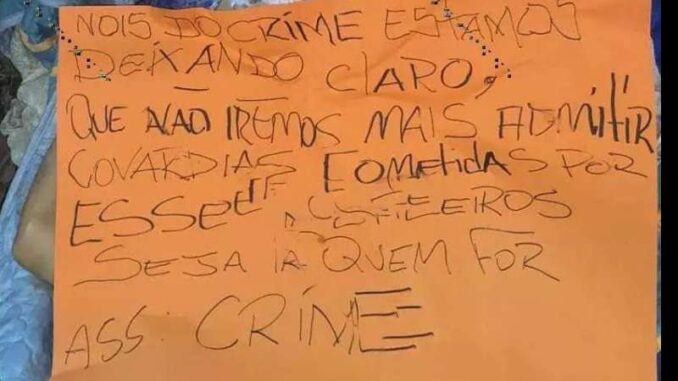 NOIS DO CRIME ESTAMOS
DEIXANDO CLARO,
QUE NÃO IREMOS MAIS ADMITIR
COVARDIAS COMETIDAS POR
SEJA LA QUEM FOR
ASS. CRIME